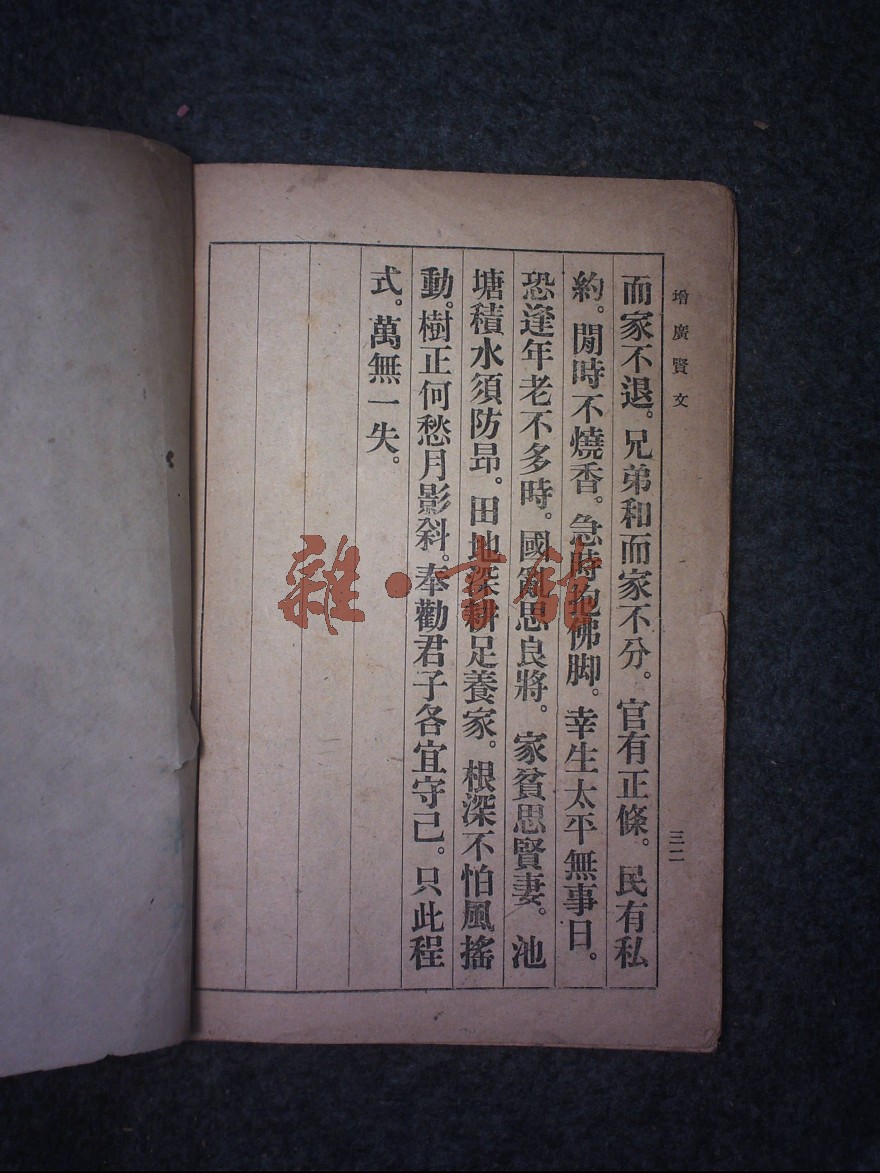 增廣賢文
三二
而家不退。兄弟和而家不分。官有正條。民有私
約。閒時不燒香。急時抱佛脚。幸生太平無事日。
恐逢年老不多時。國亂思良將。家貧思賢妻。池
塘積水須防旱。田地深耕足養家。根深不怕風搖
動。樹正何愁月影斜。奉勸君子各宜守己。只此程
式。萬無一失。
雜·書館